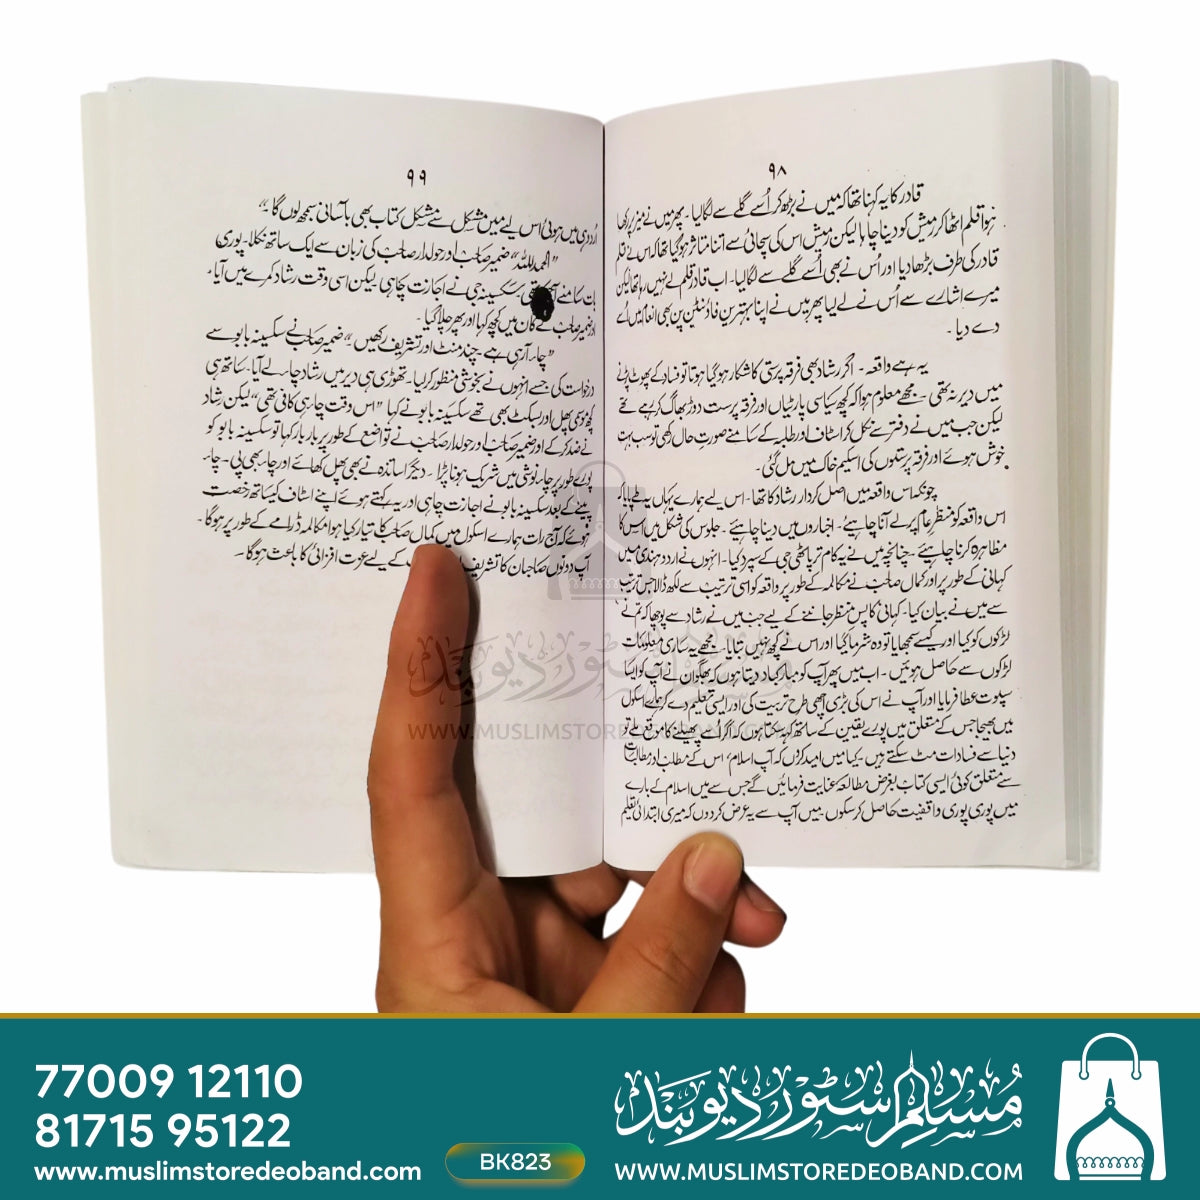 ۹۸
قادر کا یہ کہنا تھا کہ میں نے بڑھ کر اُسے گلے سے لگا لیا۔ پھر میں نے میز پر رکھا
ہوا قلم اٹھا کر رمیش کو دینا چاہا لیکن رمیش اس کی سچائی سے اتنا متاثر ہو گیا تھا کہ اس نے قلم
قادر کی طرف بڑھا دیا اور اُس نے بھی اُسے گلے سے لگا لیا۔ اب قادر قلم لے نہیں رہا تھا لیکن
میرے اشارے سے اُس نے لے لیا پھر میں نے اپنا بہترین فاؤنٹین پن بھی انعام میں اُسے
دے دیا۔
یہ ہے واقعہ۔ اگر رشاد بھی فرقہ پرستی کا شکار ہو گیا ہوتا تو فساد کے پھوٹ پڑنے
میں دیر نہ تھی۔ مجھے معلوم ہوا کہ کچھ سیاسی پارٹیاں اور فرقہ پرست دوڑ بھاگ کر رہے تھے
لیکن جب میں نے دفتر سے نکل کر اسٹاف اور طلبہ کے سامنے صورتِ حال رکھی تو سب بہت
خوش ہوئے اور فرقہ پرستوں کی اسکیم خاک میں مل گئی۔
چونکہ اس واقعہ میں اصل کردار رشاد کا تھا۔ اس لیے ہمارے یہاں یہ طے پایا کہ
اس واقعہ کو منظرِ عام پر لے آنا چاہیئے۔ اخباروں میں دینا چاہیئے۔ جلوس کی شکل میں اس کا
مظاہرہ کرنا چاہیئے۔ چنانچہ میں نے یہ کام ترپاٹھی جی کے سپرد کیا۔ انہوں نے اردو ہندی میں
کہانی کے طور پر اور کمال صاحب نے مکالمہ کے طور پر واقعہ کو اسی ترتیب سے لکھ ڈالا جس ترتیب
سے میں نے بیان کیا۔ کہانی کا پس منظر جاننے کے لیے جب میں نے رشاد سے پوچھا کہ تم نے
لڑکوں کو کیا اور کیسے سمجھایا تو وہ شرما گیا اور اس نے کچھ نہیں بتایا۔ مجھے یہ ساری معلومات
لڑکوں سے حاصل ہوئیں۔ اب میں پھر آپ کو مبارکباد دیتا ہوں کہ بھگوان نے آپ کو ایسا
سپوت عطا فرمایا اور آپ نے اس کی بڑی اچھی طرح تربیت کی اور ایسی تعلیم دے کر ہمارے اسکول
میں بھیجا جس کے متعلق میں پورے یقین کے ساتھ کہہ سکتا ہوں کہ اگر اُسے پھیلنے کا موقع ملے تو
دنیا سے فسادات مٹ سکتے ہیں۔ کیا میں امید کروں کہ آپ اسلام، اس کے مطلب اور مطالبات
سے متعلق کوئی ایسی کتاب بغرض مطالعہ عنایت فرمائیں گے جس سے میں اسلام کے بارے
میں پوری پوری واقفیت حاصل کر سکوں۔ میں آپ سے یہ عرض کر دوں کہ میری ابتدائی تعلیم
۹۹
اُردو ہی میں ہوئی اس لیے میں مشکل سے مشکل کتاب بھی بآسانی سمجھ لوں گا۔"
"الحمدللہ" ضمیر صاحب اور حولدار صاحب کی زبان سے ایک ساتھ نکلا۔ پوری
بات سامنے سکسینہ جی نے اجازت چاہی لیکن اسی وقت رشاد کمرے میں آیا۔
اور ضمیر صاحب کے کان میں کچھ کہا اور پھر چلا گیا۔
"چائے آ رہی ہے۔ چند منٹ اور تشریف رکھیں"، ضمیر صاحب نے سکسینہ بابو سے
درخواست کی جسے انہوں نے بخوشی منظور کر لیا۔ تھوڑی ہی دیر میں رشاد چائے لے آیا۔ ساتھ ہی
کچھ موسمی پھل اور بسکٹ بھی تھے سکسینہ بابو نے کہا "اس وقت چائے ہی کافی تھی" لیکن رشاد
نے ضد کر کے اور ضمیر صاحب اور حولدار صاحب نے تواضع کے طور پر بار بار کہا تو سکسینہ بابو کو
پورے طور پر چائے نوشی میں شریک ہونا پڑا۔ دیگر اساتذہ نے بھی پھل کھائے اور چائے بھی پی۔ چائے
پینے کے بعد سکسینہ بابو نے اجازت چاہی اور یہ کہتے ہوئے اپنے اسٹاف کے ساتھ رخصت
ہوئے کہ آج رات ہمارے اسکول میں کمال صاحب کا تیار کیا ہوا مکالمہ ڈرامے کے طور پر ہوگا۔
آپ دونوں صاحبان کا تشریف کے لیے عزت افزائی کا باعث ہوگا۔
مسلم سٹور دیوبند
WWW.MUSLIMSTOREDEOBAND.COM
77009 12110
81715 95122
www.muslimstoredeoband.com
BK823
مسلم سٹور دیوبند
WWW.MUSLIMSTOREDEOBAND.COM